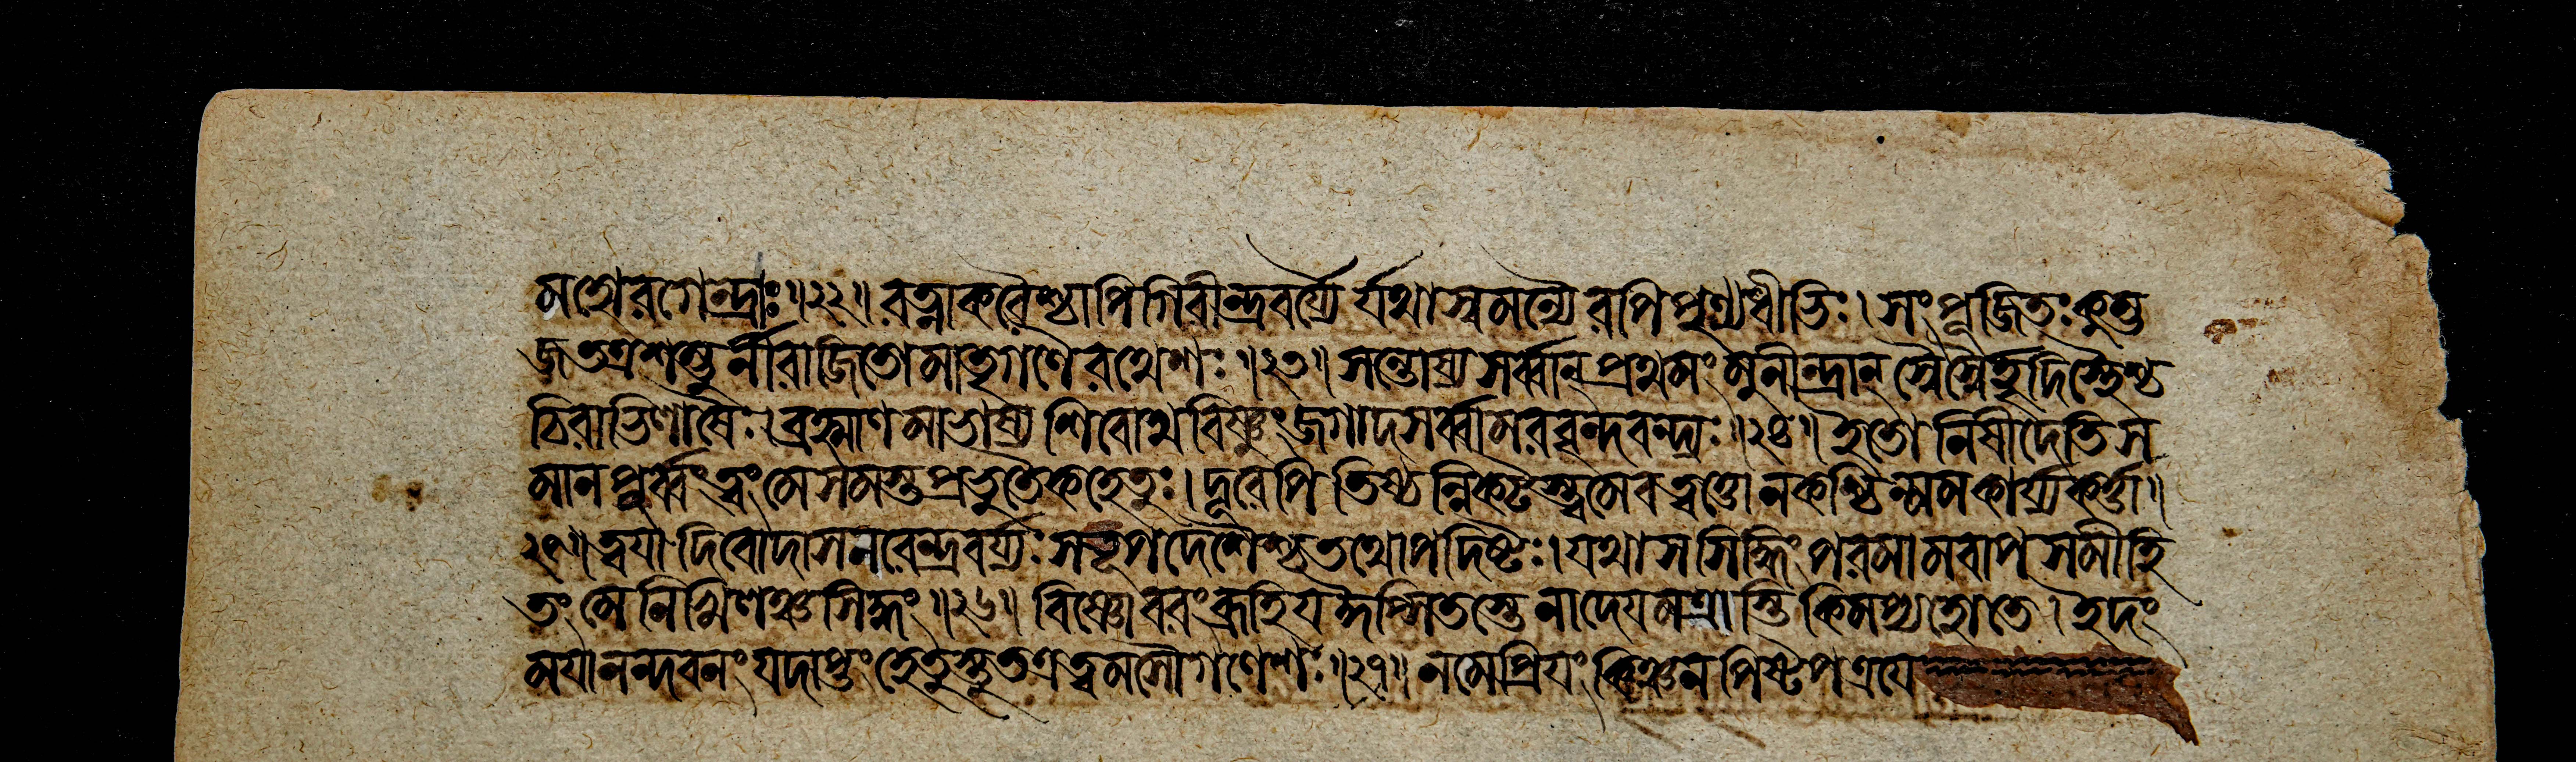 মহোরগেন্দ্রাঃ॥২২॥ রত্নাকরৈশ্চাপি গিরীন্দ্রবর্য্যৈর্যথাস্বমন্যৈরপি পুণ্যধীভিঃ। সংপূজিতঃ কুম্ভ
জ তত্র শম্ভুর্নীরাজিতো মাতৃগণৈরথেশঃ॥২৩॥ সন্তোষ্য সর্ব্বান্ প্রথমং মুনীন্দ্রান্ স্বৈস্বৈর্হৃদিস্থৈশ্চ
চিরাভিলাষৈঃ। ব্রহ্মাণমাভাষ্য শিবোথ বিষ্ণুং জগাদ সর্ব্বামরবৃন্দবন্দ্যঃ॥২৪॥ ইতো নিষীদেতি স
মানপূর্ব্বং ত্বং মে সমস্তপ্রভুতৈকহেতুঃ। দূরেপি তিষ্ঠন্নিকটস্ত্বমেব ত্বত্তো ন কশ্চিন্মম কার্য্যকর্ত্তা॥
২৫॥ ত্বয়া দিবোদাসনরেন্দ্রবর্য্যঃ সদূপদেশৈশ্চ তথোপদিষ্টঃ। যথা স সিদ্ধিং পরমামবাপ সমীহি
তং মে নিখিলঞ্চ সিদ্ধং॥২৬॥ বিষ্ণো বরং ব্রূহি য ঈপ্সিতস্তে নাদেয়মত্রাস্তি কিমপ্যহো তে। ইদং
ময়ানন্দবনং যদাপ্তং হেতুস্তু তত্র ত্বমসৌ গণেশঃ॥২৭॥ ন মে প্রিয়ং কিঞ্চন পিষ্টপত্রয়ে